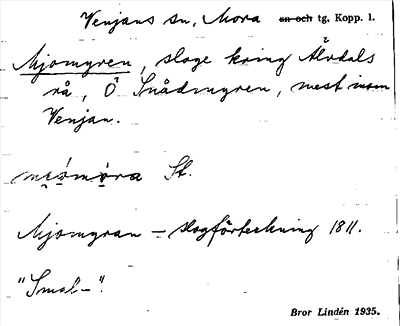 Venjans sn, Mora sn och tg. Kopp. l.
Mjömyren, sloge kring Älvdals
rå, Ö Snådmyren, mest inom
Venjan.
St.
Mjomyran – slogförteckning 1811.
"Smal-".
Bror Lindén 1935.